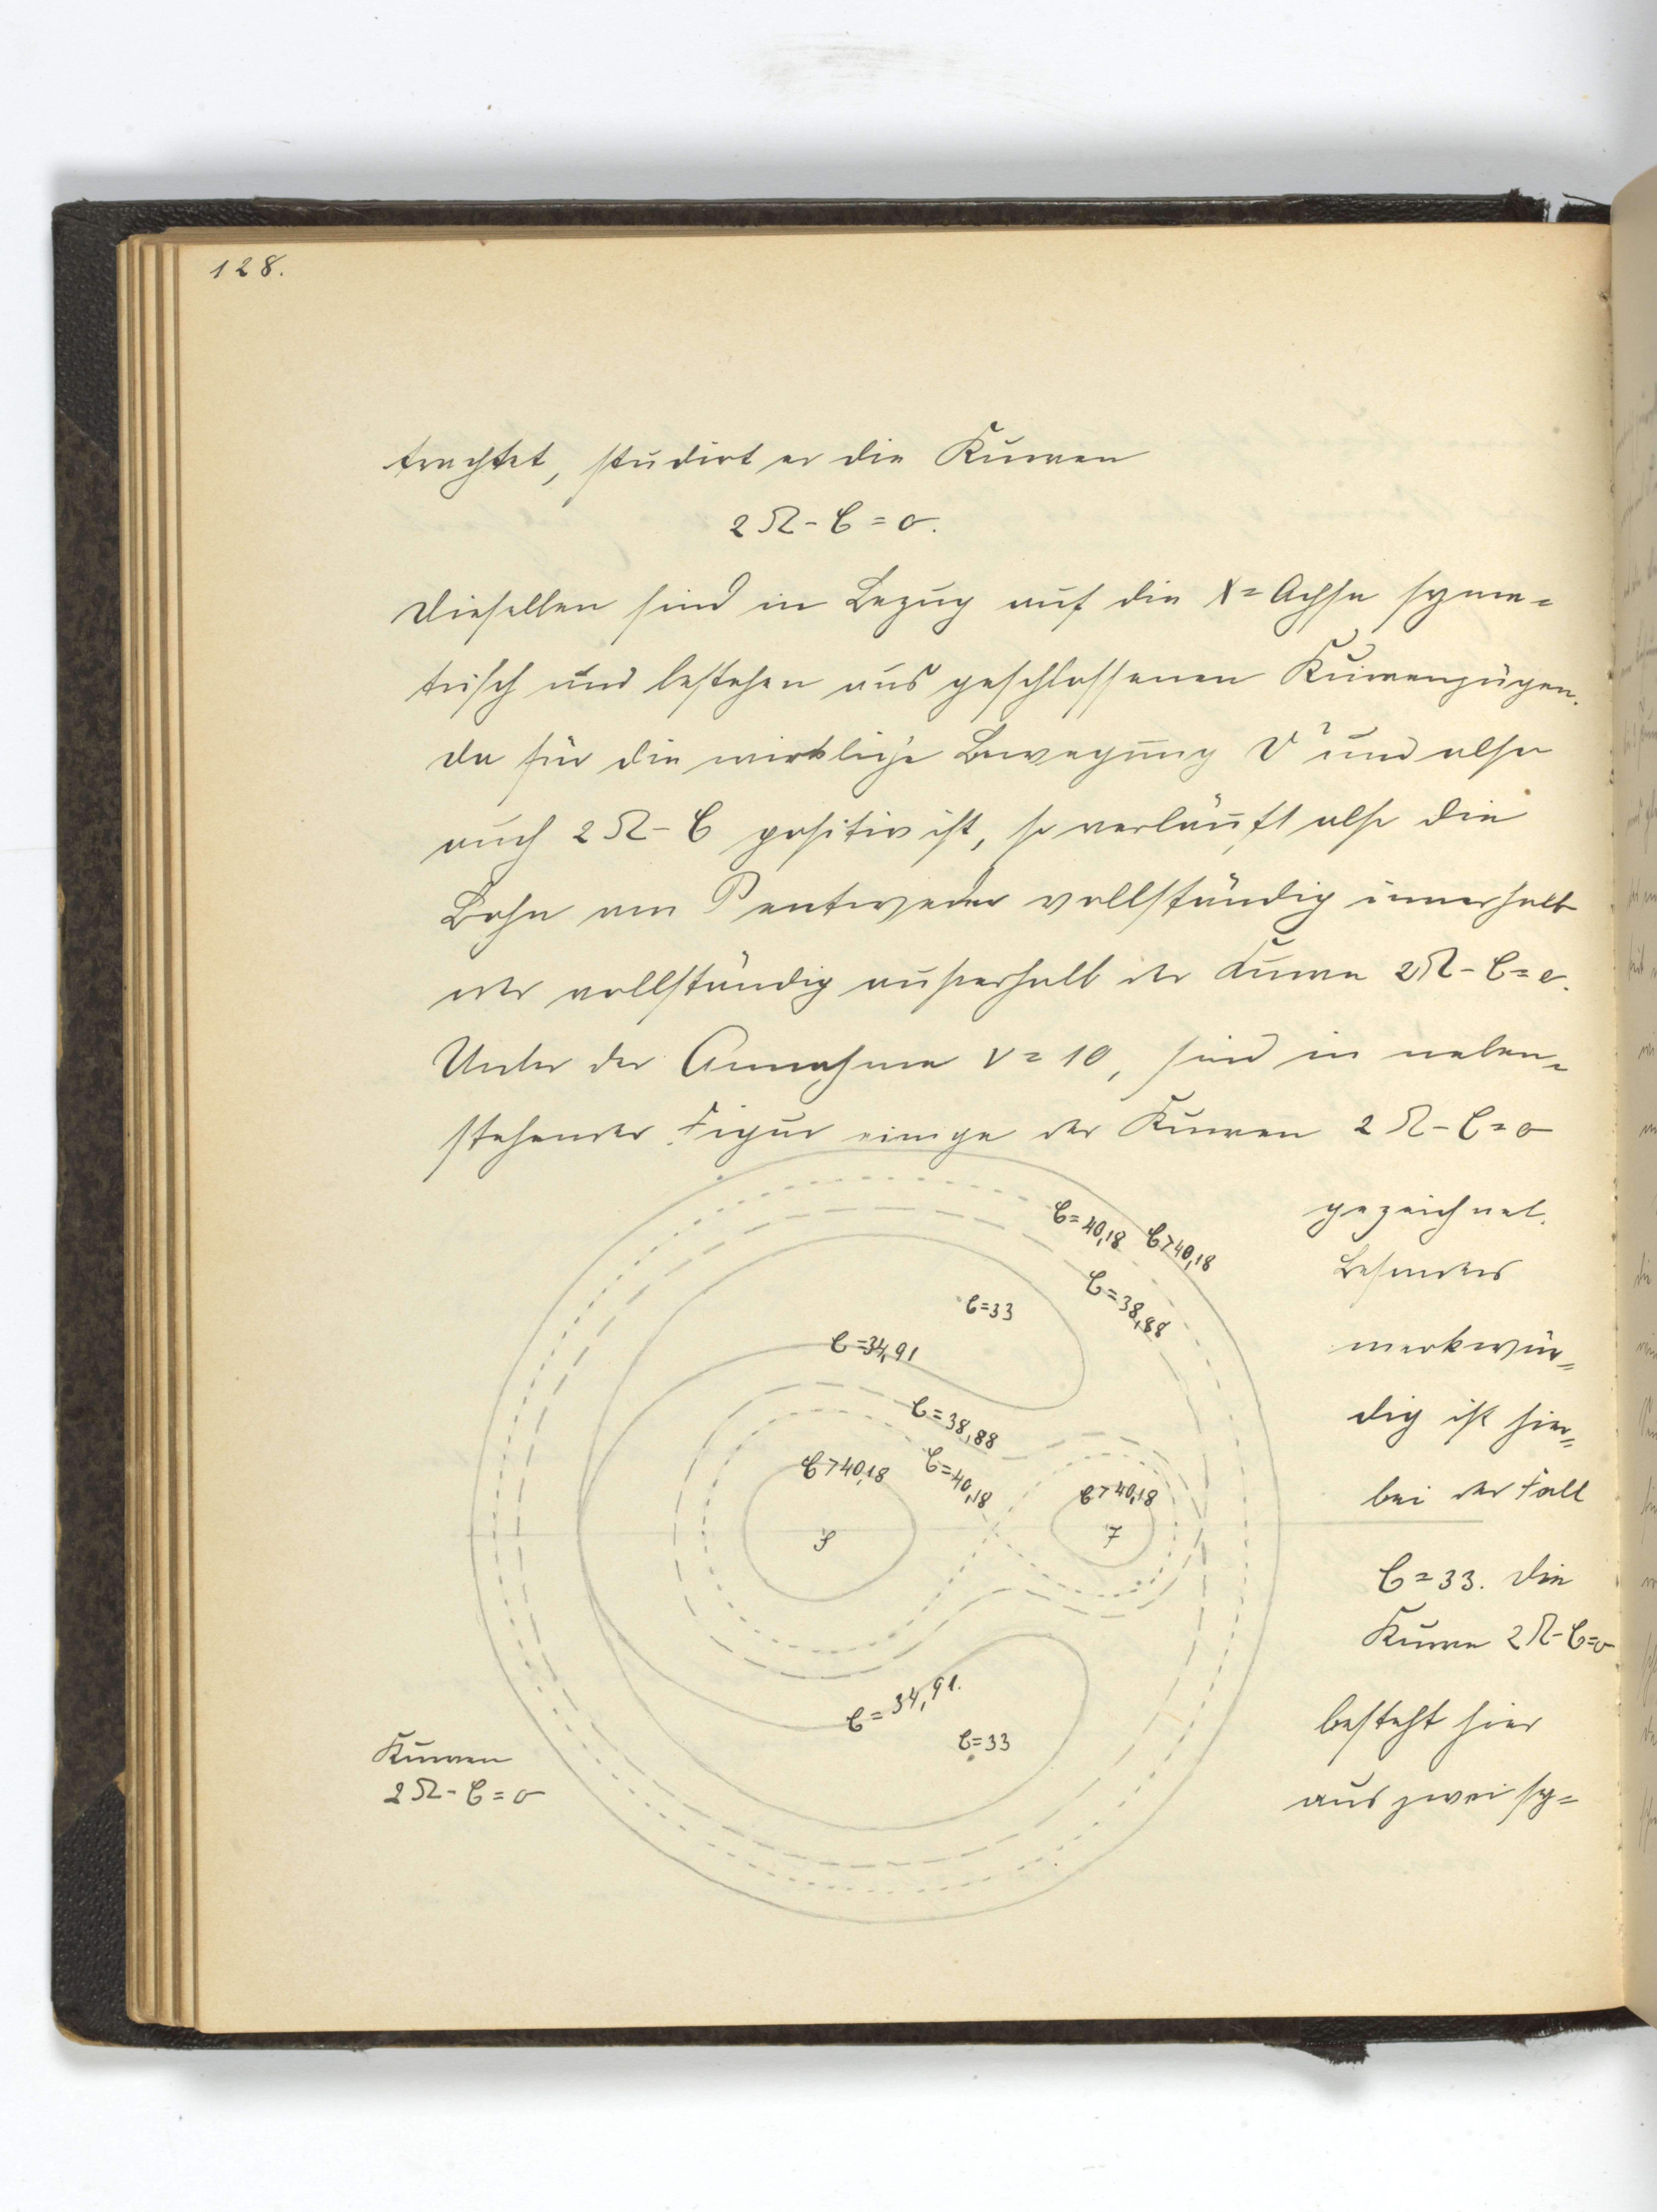 128.
trachtet, studirt er die Kurven
2Ω - C = o.
Dieselben sind in Bezug auf die X=Achse syme=
trisch und bestehen aus geschlossenen Kurvenzügen.
Da für die wirkliche Bewegung V² und also
auch 2Ω - C positiv ist, so verläuft also die
Bahn von P entweder vollständig innerhalb
oder vollständig außerhalb der Kurve 2Ω - C = o.
Unter der Annahme ν = 10, sind in neben=
stehender Figur einige der Kurven 2Ω - C = o
gezeichnet.
Besonders
merkwür=
dig ist hier=
bei der Fall
C = 33. Die
Kurve 2Ω - C = o
besteht hier
aus zwei sy=
C = 40,18 C > 40,18
C = 38,88
C = 33
C = 34,91
C = 38,88
C > 40,18
C = 40,18
C > 40,18
S
J
C = 34,91.
C = 33
Kurven
2Ω - C = o